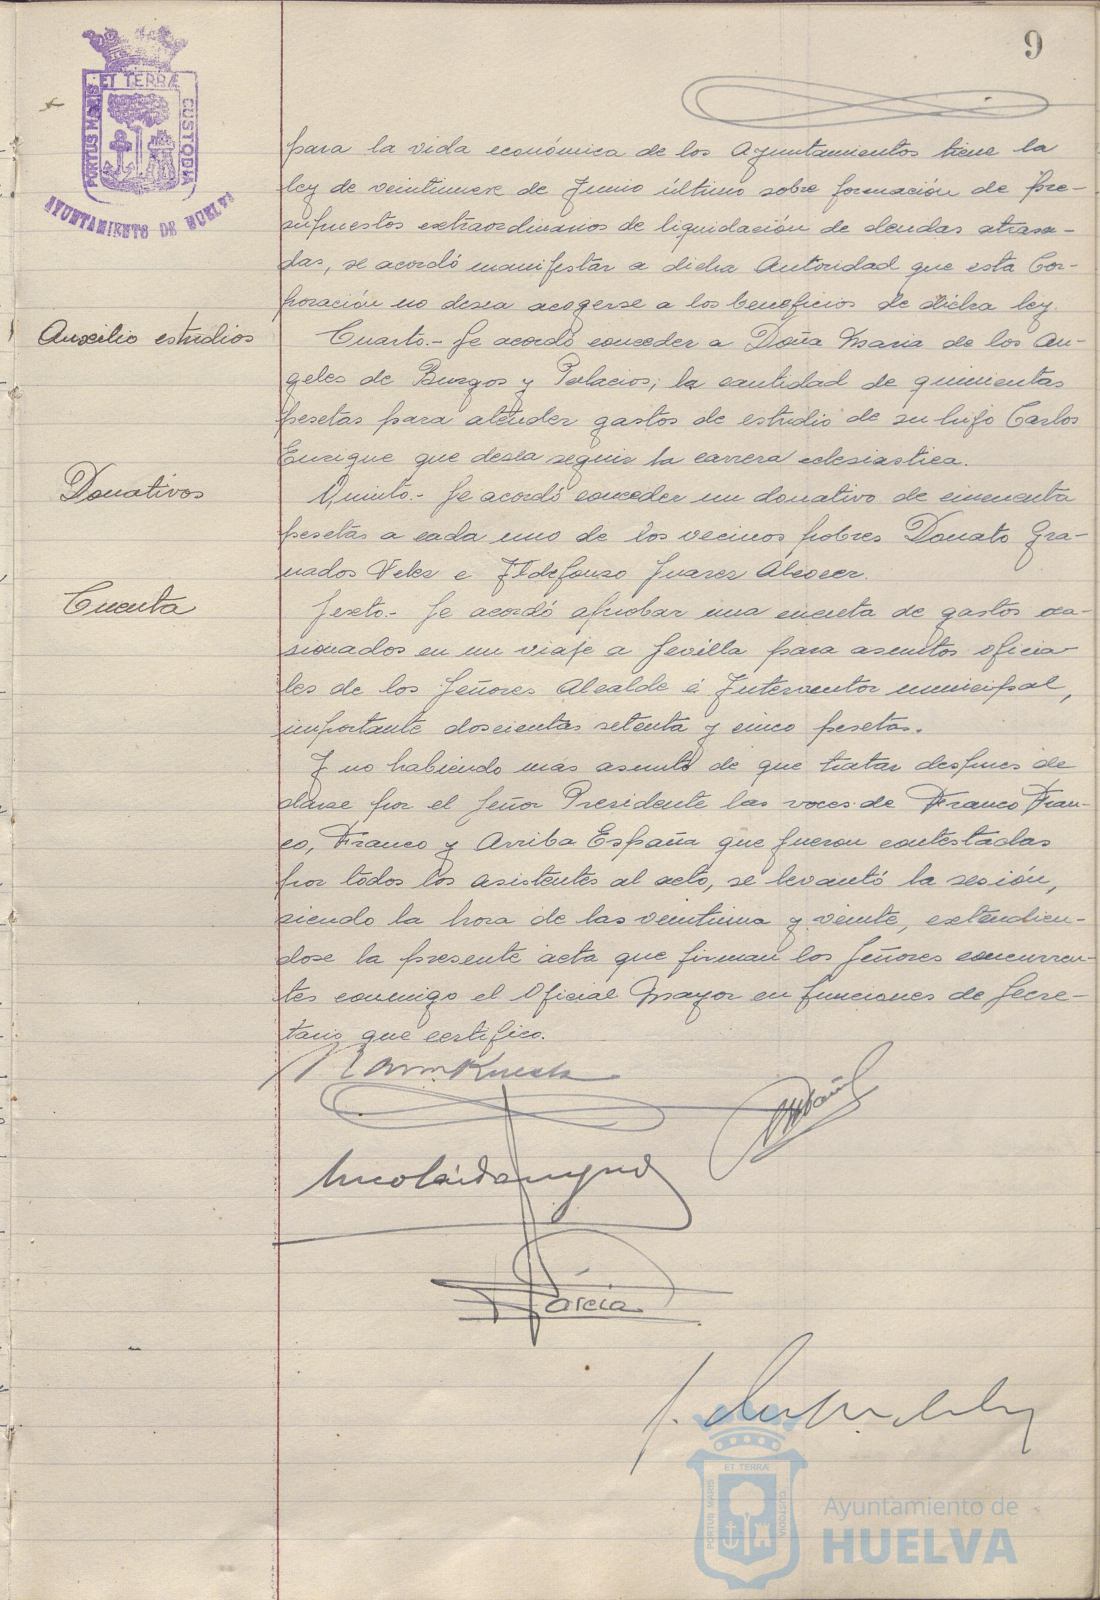 9
ET TERRÆ
PORTUS MARIS
CUSTODIA
AYUNTAMIENTO DE HUELVA
para la vida económica de los Ayuntamientos tiene la
ley de veintinueve de Junio último sobre formación de pre-
supuestos extraordinarios de liquidación de deudas atrasa-
das, se acordó manifestar a dicha Autoridad que esta Cor-
poración no desea acogerse a los beneficios de dicha ley.
Auxilio estudios
Cuarto.- Se acordó conceder a Doña Maria de los An-
geles de Burgos y Palacios, la cantidad de quinientas
pesetas para atender gastos de estudio de su hijo Carlos
Enrique que desea seguir la carrera eclesiastica.
Donativos
Quinto.- Se acordó conceder un donativo de cincuenta
pesetas a cada uno de los vecinos pobres Donato Gra-
nados Velez e Ildefonso Juarez Alcocer.
Cuenta
Sexto.- Se acordó aprobar una cuenta de gastos oca-
sionados en un viaje a Sevilla para asuntos oficia-
les de los Señores Alcalde é Interventor municipal,
importante doscientas setenta y cinco pesetas.
Y no habiendo más asunto de que tratar despues de
darse por el Señor Presidente las voces de Franco Fran-
co, Franco y Arriba España que fueron contestadas
por todos los asistentes al acto, se levantó la sesión,
siendo la hora de las veintiuna y veinte, extendien-
dose la presente acta que firman los Señores concurren-
tes conmigo el Oficial Mayor en funciones de Secre-
tario que certifico.
García
ET TERRÆ
PORTUS MARIS
CUSTODIA
Ayuntamiento de
HUELVA